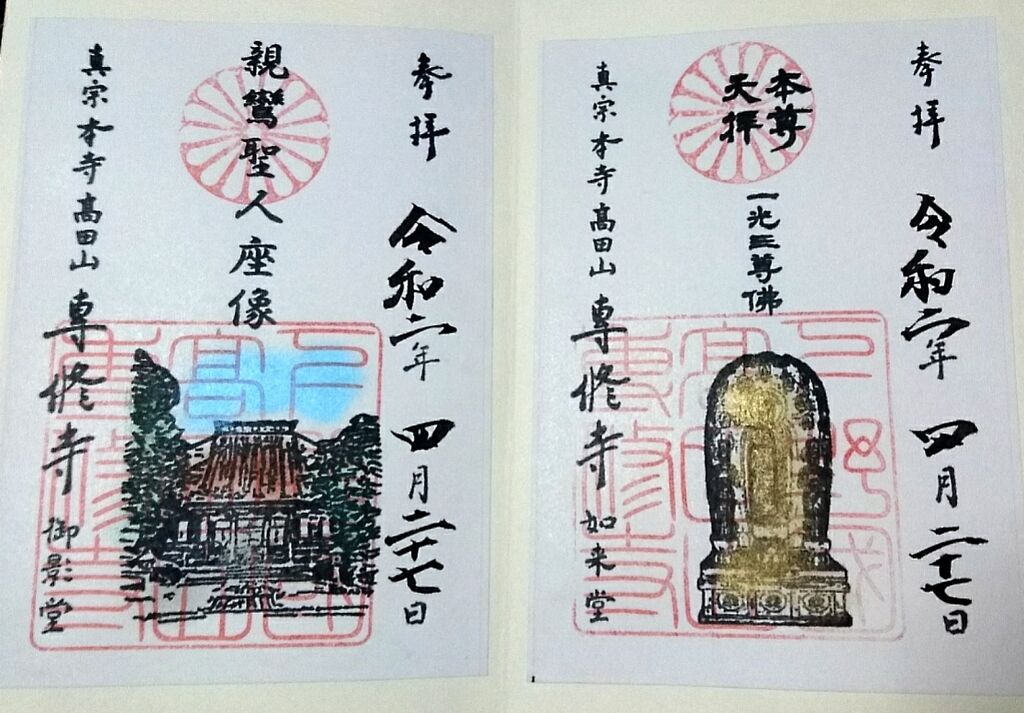 奉拝
令和二年 四月二十七日
本尊
天拝
一光三尊佛
真宗本寺高田山 専修寺 如来堂
奉拝
令和二年 四月二十七日
親鸞聖人座像
真宗本寺高田山 専修寺 御影堂